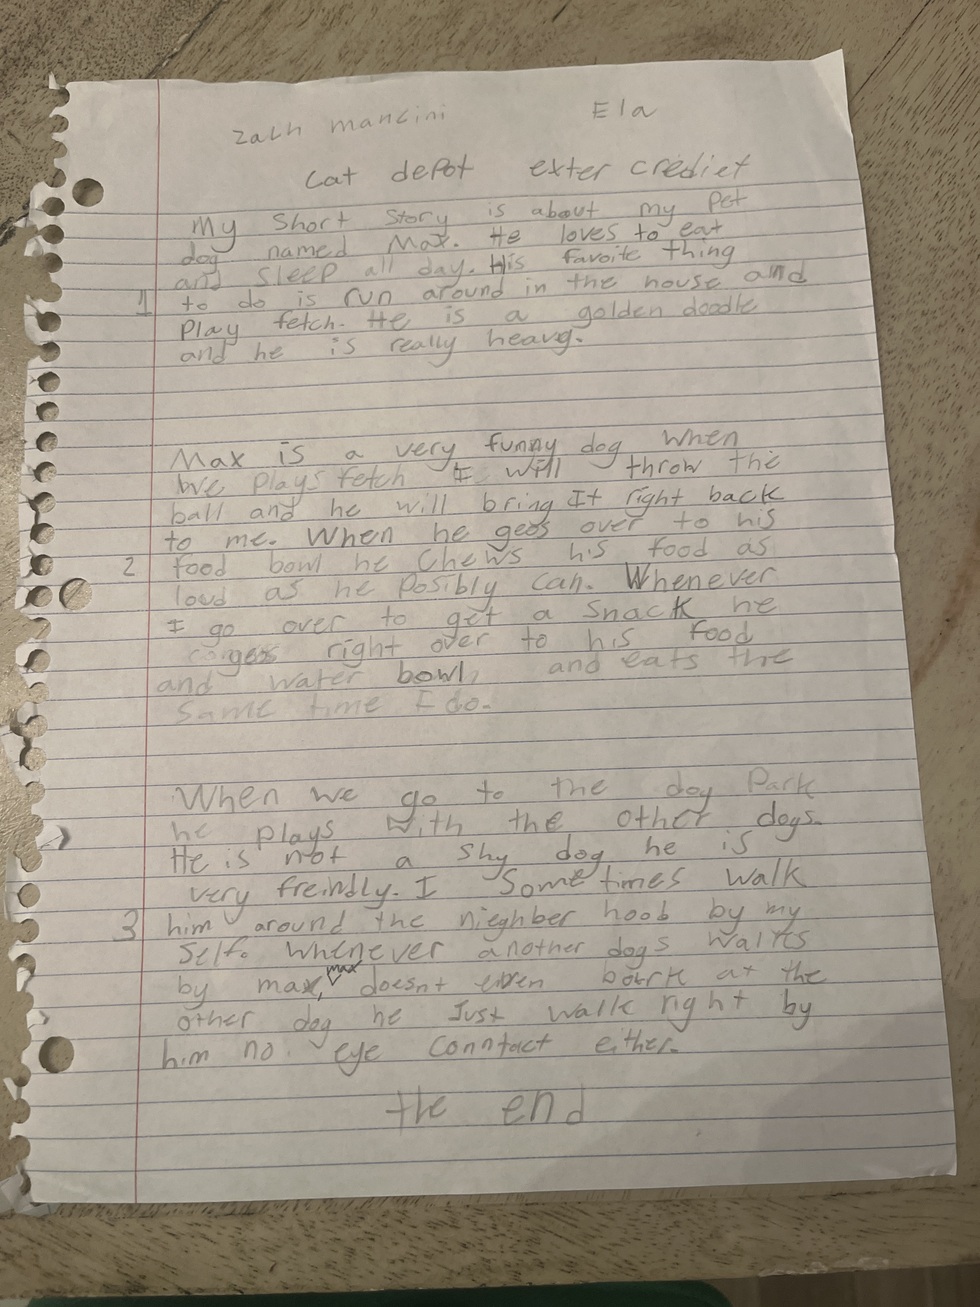 Zach mancini Ela
Cat depot exter crediet
My Short Story is about my Pet
dog named Max. He loves to eat
and Sleep all day. His favoite thing
1 to do is run around in the house and
Play fetch. He is a golden doodle
and he is really heavy.
Max is a very funny dog When
we plays fetch I will throw the
ball and he will bring It right back
to me. When he geos over to his
2 food bowl he Chews his food as
loud as he Posibly can. Whenever
I go over to get a Snack he
right over to his food
and water bowl, and eats the
Same time I do.
When we go to the dog Park
he plays With the other dogs.
He is not a Shy dog, he is
very freindly. I Sometimes walk
3 him around the nieghber hoob by my
Self. Whenever another dogs Walks
by max, max doesnt even bark at the
other dog he Just walk right by
him no eye conntact either.
the end